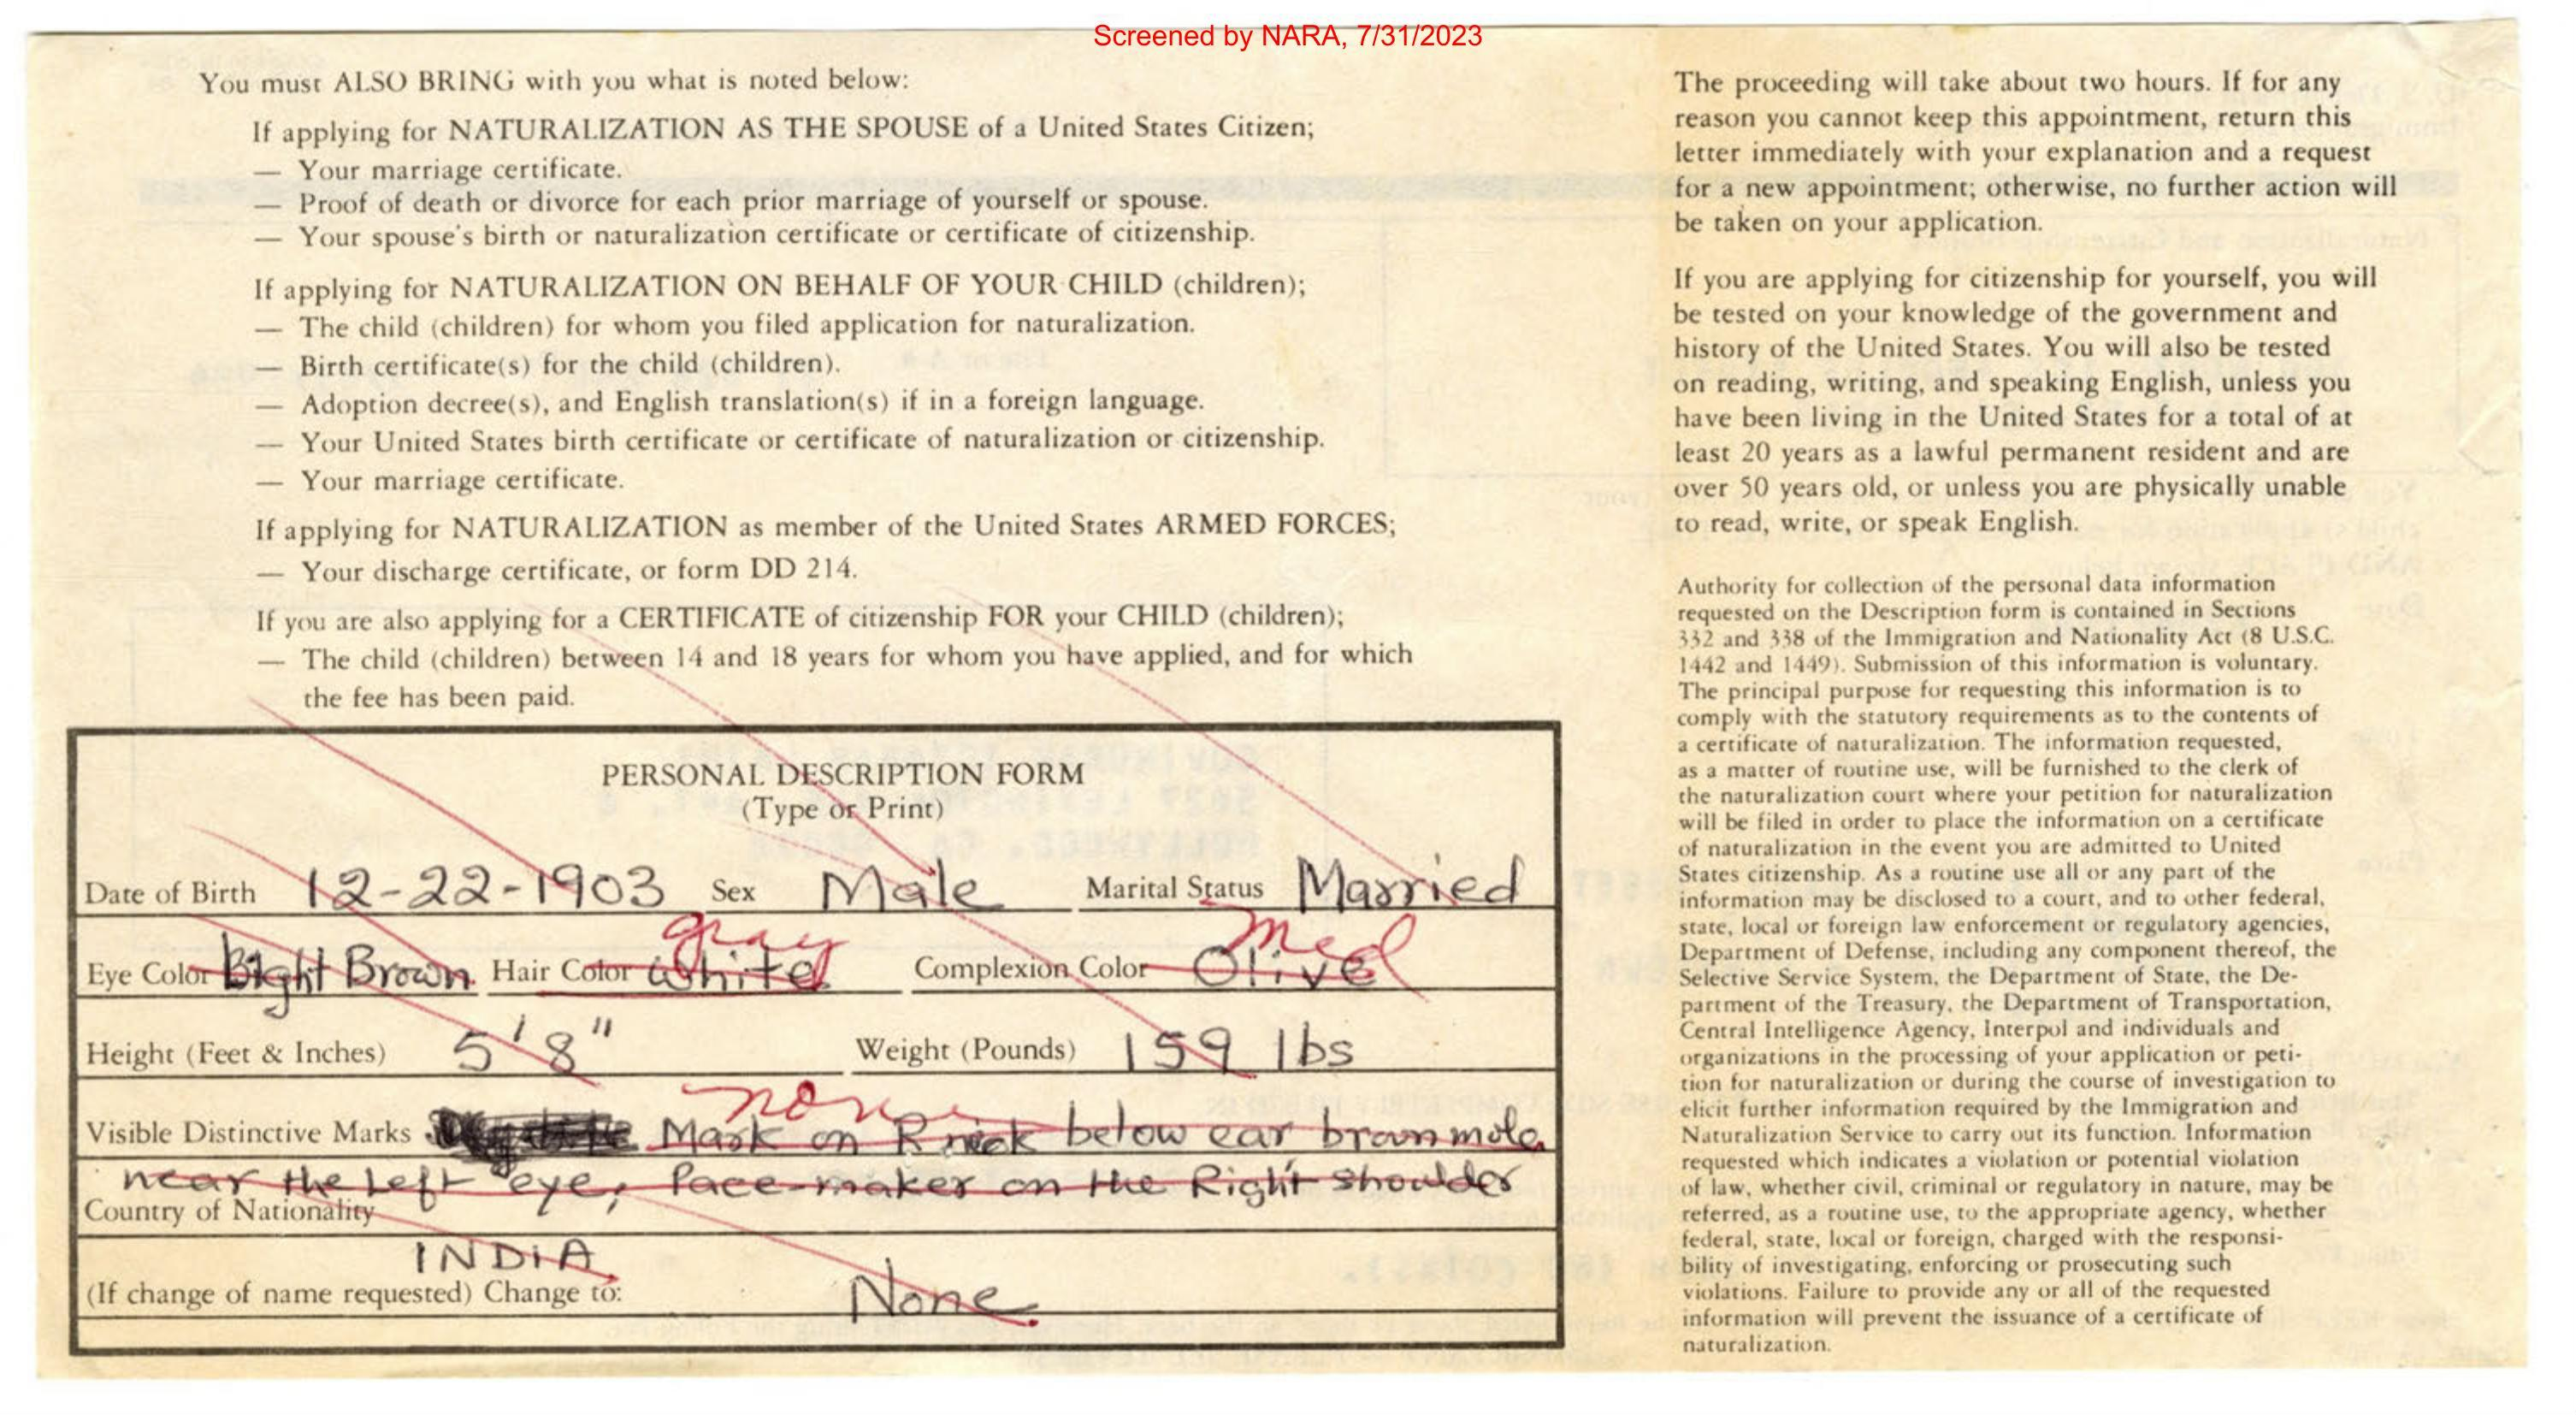 Screened by NARA, 7/31/2023
You must ALSO BRING with you what is noted below:
If applying for NATURALIZATION AS THE SPOUSE of a United States Citizen;
— Your marriage certificate.
— Proof of death or divorce for each prior marriage of yourself or spouse.
— Your spouse's birth or naturalization certificate or certificate of citizenship.
If applying for NATURALIZATION ON BEHALF OF YOUR CHILD (children);
— The child (children) for whom you filed application for naturalization.
— Birth certificate(s) for the child (children).
— Adoption decree(s), and English translation(s) if in a foreign language.
— Your United States birth certificate or certificate of naturalization or citizenship.
— Your marriage certificate.
If applying for NATURALIZATION as member of the United States ARMED FORCES;
— Your discharge certificate, or form DD 214.
If you are also applying for a CERTIFICATE of citizenship FOR your CHILD (children);
— The child (children) between 14 and 18 years for whom you have applied, and for which
the fee has been paid.
PERSONAL DESCRIPTION FORM
(Type or Print)
Date of Birth 12-22-1903 Sex Male Marital Status Married
gray med
Eye Color Brown Hair Color White Complexion Color Olive
Height (Feet & Inches) 5'8" Weight (Pounds) 159 lbs
none
Visible Distinctive Marks Mark on R neck below ear brown mole
near the Left eye, Pace-maker on the Right shoulder
Country of Nationality
INDIA
(If change of name requested) Change to: None.
The proceeding will take about two hours. If for any
reason you cannot keep this appointment, return this
letter immediately with your explanation and a request
for a new appointment; otherwise, no further action will
be taken on your application.
If you are applying for citizenship for yourself, you will
be tested on your knowledge of the government and
history of the United States. You will also be tested
on reading, writing, and speaking English, unless you
have been living in the United States for a total of at
least 20 years as a lawful permanent resident and are
over 50 years old, or unless you are physically unable
to read, write, or speak English.
Authority for collection of the personal data information
requested on the Description form is contained in Sections
332 and 338 of the Immigration and Nationality Act (8 U.S.C.
1442 and 1449). Submission of this information is voluntary.
The principal purpose for requesting this information is to
comply with the statutory requirements as to the contents of
a certificate of naturalization. The information requested,
as a matter of routine use, will be furnished to the clerk of
the naturalization court where your petition for naturalization
will be filed in order to place the information on a certificate
of naturalization in the event you are admitted to United
States citizenship. As a routine use all or any part of the
information may be disclosed to a court, and to other federal,
state, local or foreign law enforcement or regulatory agencies,
Department of Defense, including any component thereof, the
Selective Service System, the Department of State, the De-
partment of the Treasury, the Department of Transportation,
Central Intelligence Agency, Interpol and individuals and
organizations in the processing of your application or peti-
tion for naturalization or during the course of investigation to
elicit further information required by the Immigration and
Naturalization Service to carry out its function. Information
requested which indicates a violation or potential violation
of law, whether civil, criminal or regulatory in nature, may be
referred, as a routine use, to the appropriate agency, whether
federal, state, local or foreign, charged with the responsi-
bility of investigating, enforcing or prosecuting such
violations. Failure to provide any or all of the requested
information will prevent the issuance of a certificate of
naturalization.